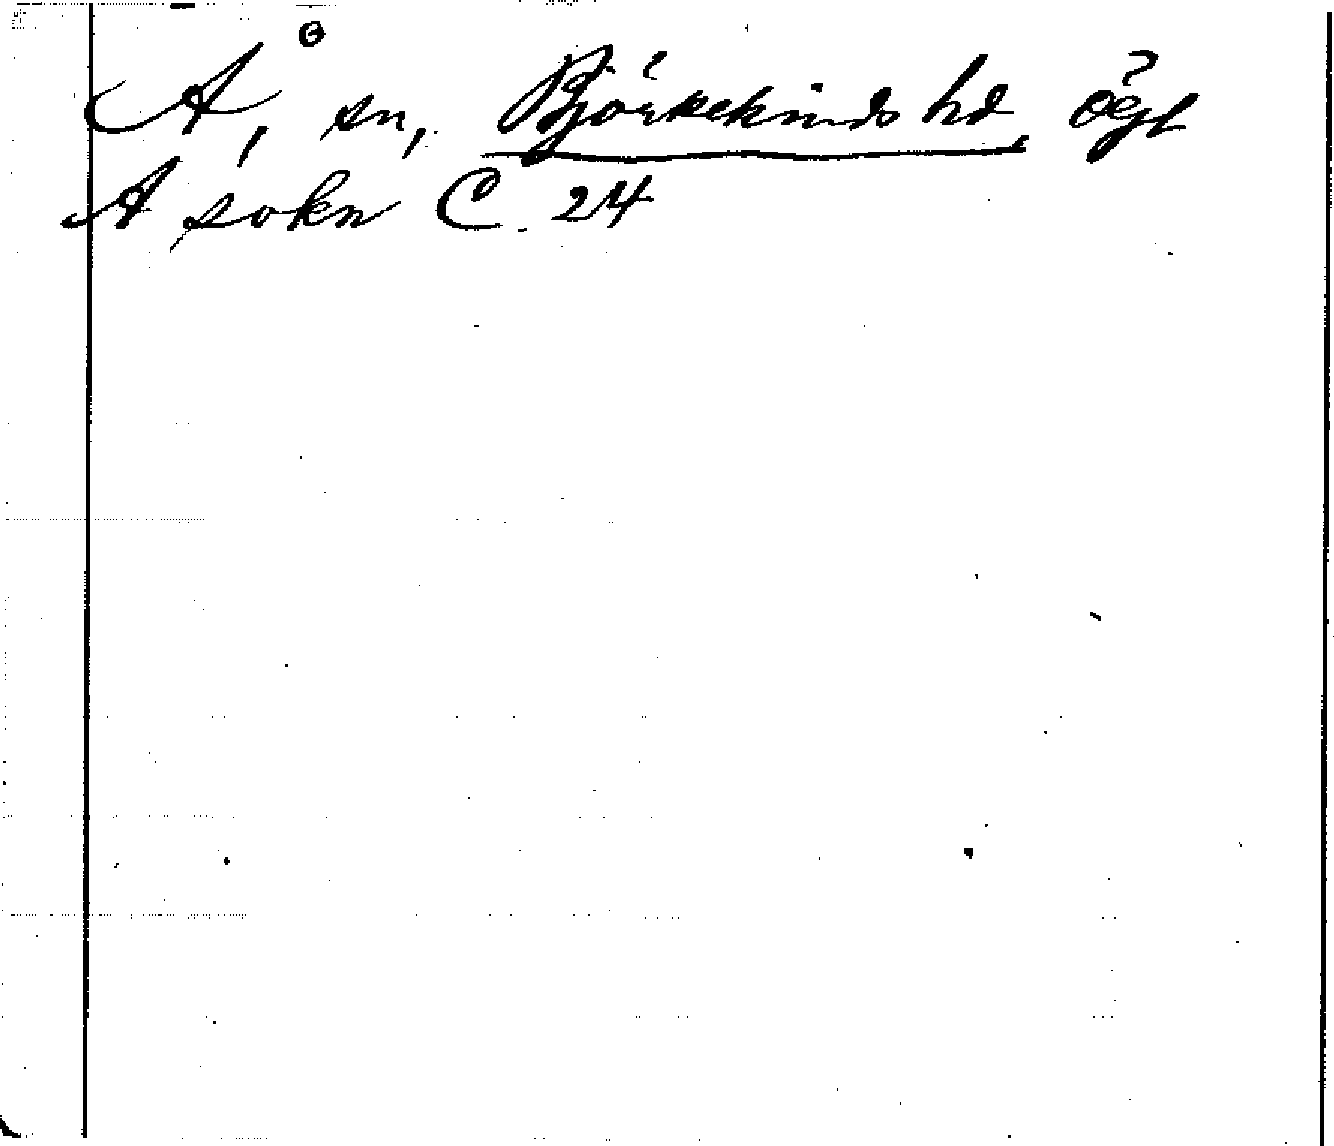 Å, sn, Björkekinds hd, Ögl
A sokn C 24